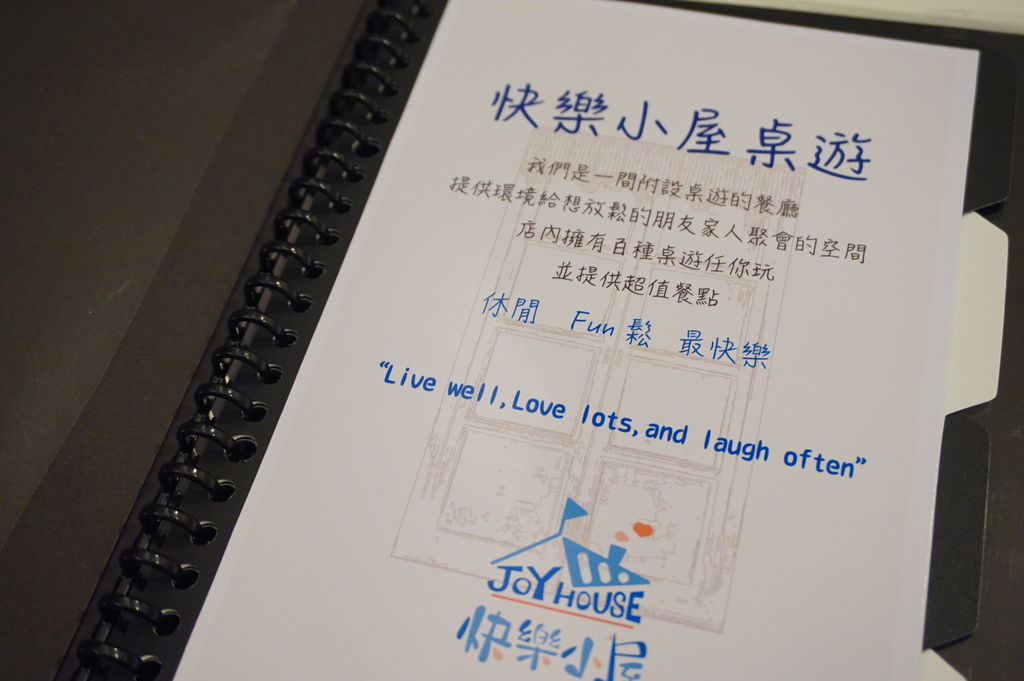 快樂小屋桌遊
我們是一間附設桌遊的餐廳
提供環境給想放鬆的朋友家人聚會的空間
店內擁有百種桌遊任你玩
並提供超值餐點
休閒 Fun鬆 最快樂
“Live well, Love lots, and laugh often”
JOY HOUSE
快樂小屋